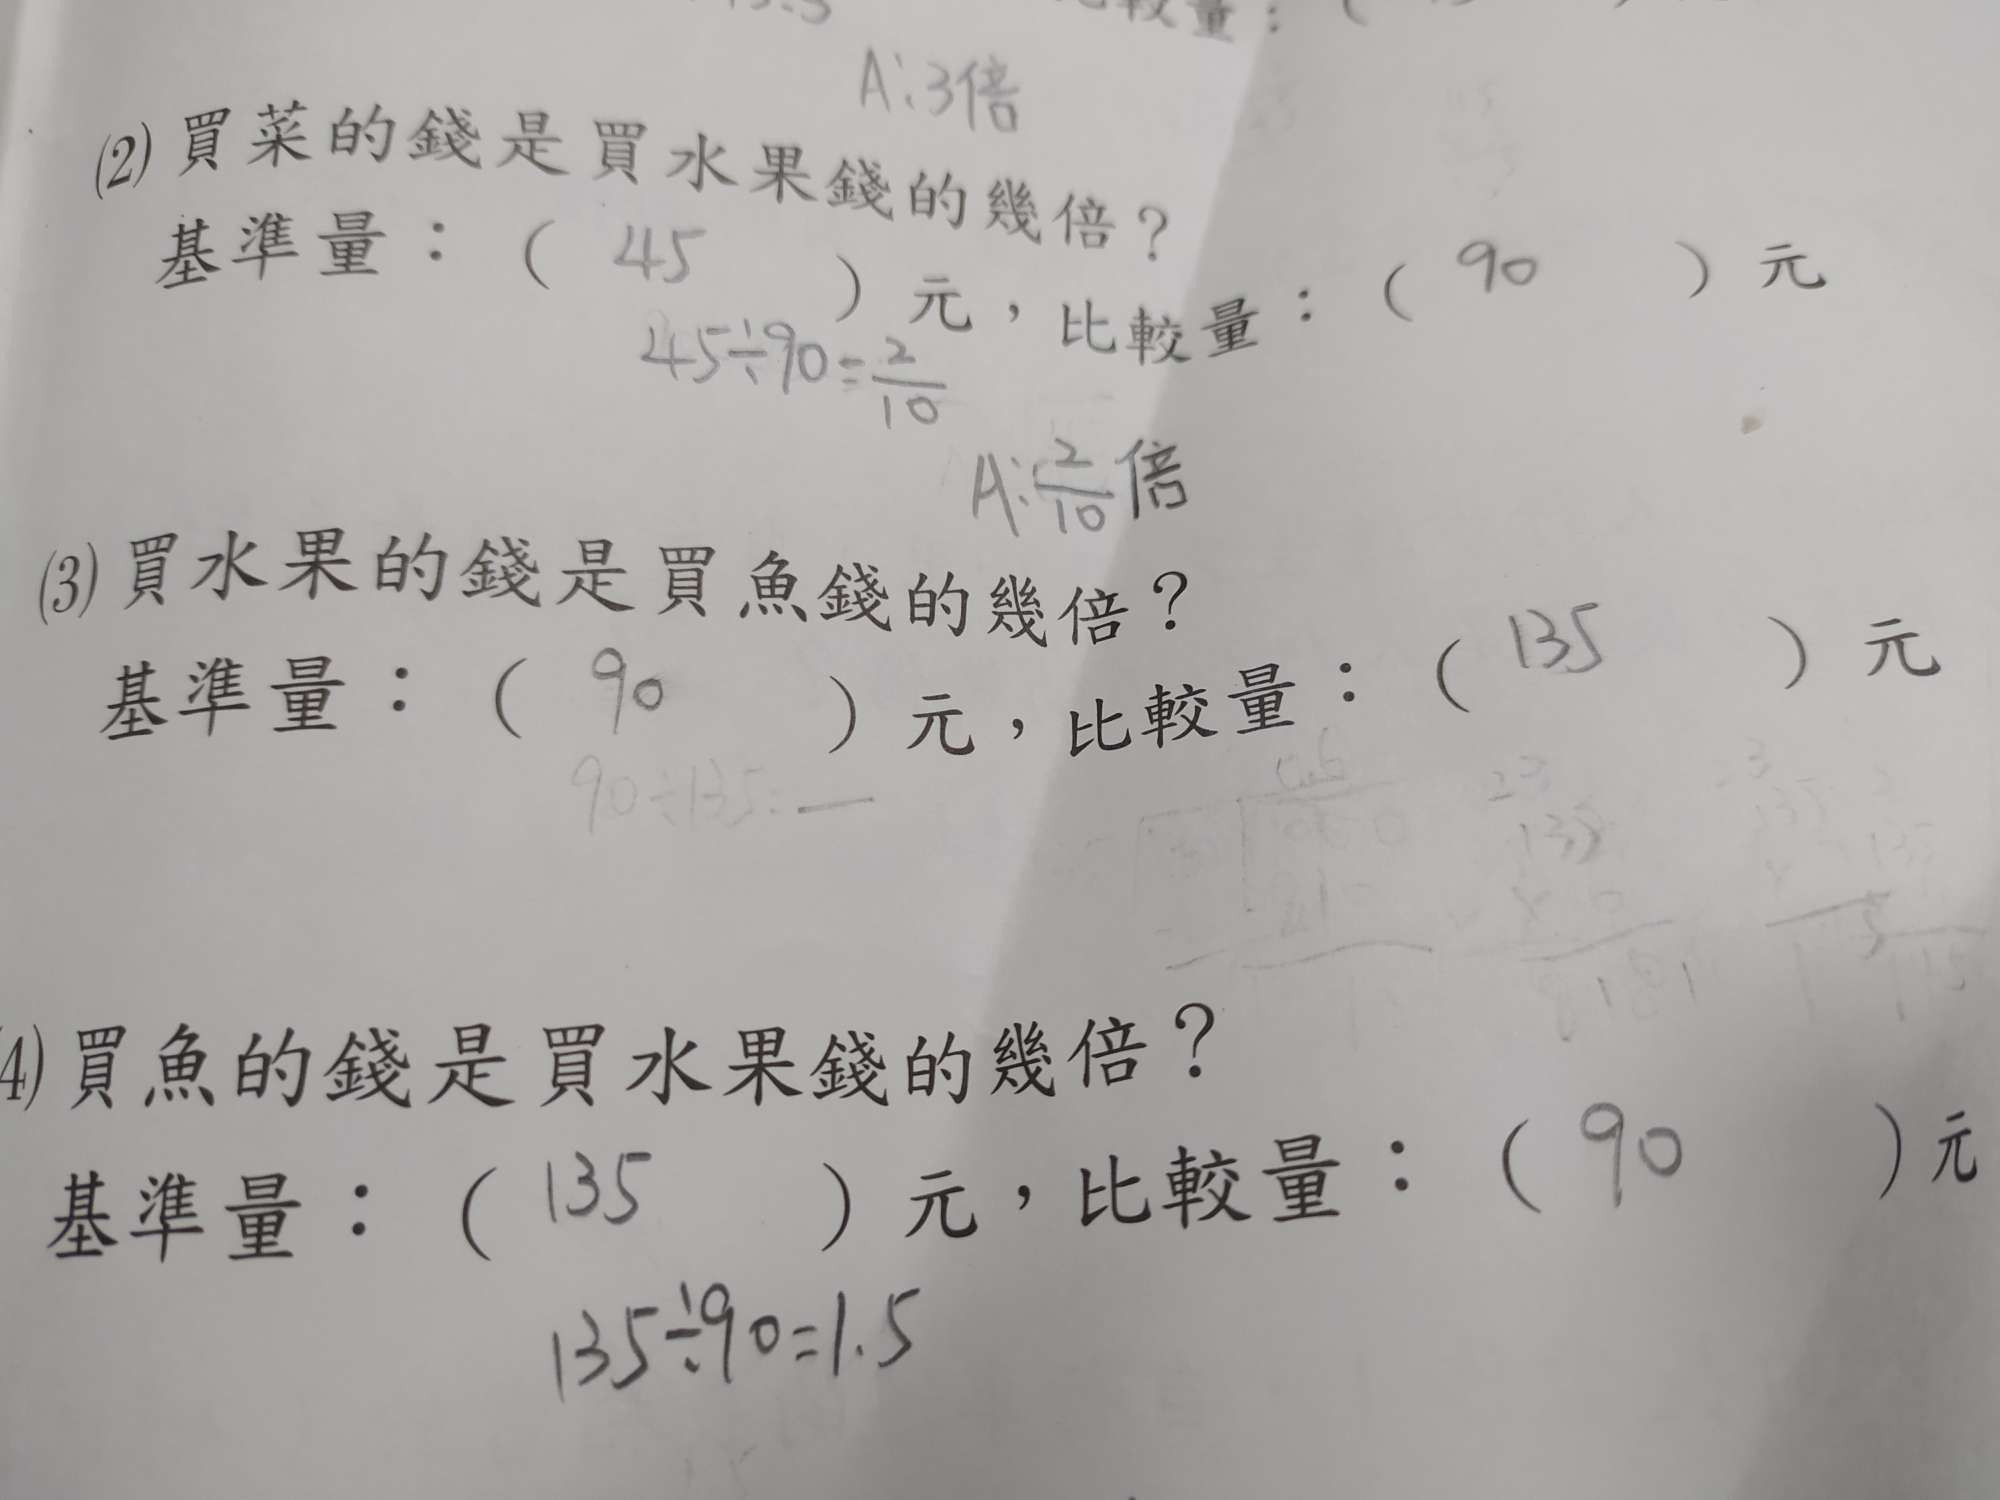 比較量：（
A:3倍
(2) 買菜的錢是買水果錢的幾倍？
基準量：（ 45 ）元，比較量：（ 90 ）元
45÷90=2/10
A:2/10倍
(3) 買水果的錢是買魚錢的幾倍？
基準量：（ 90 ）元，比較量：（ 135 ）元
90÷135=—
(4) 買魚的錢是買水果錢的幾倍？
基準量：（ 135 ）元，比較量：（ 90 ）元
135÷90=1.5